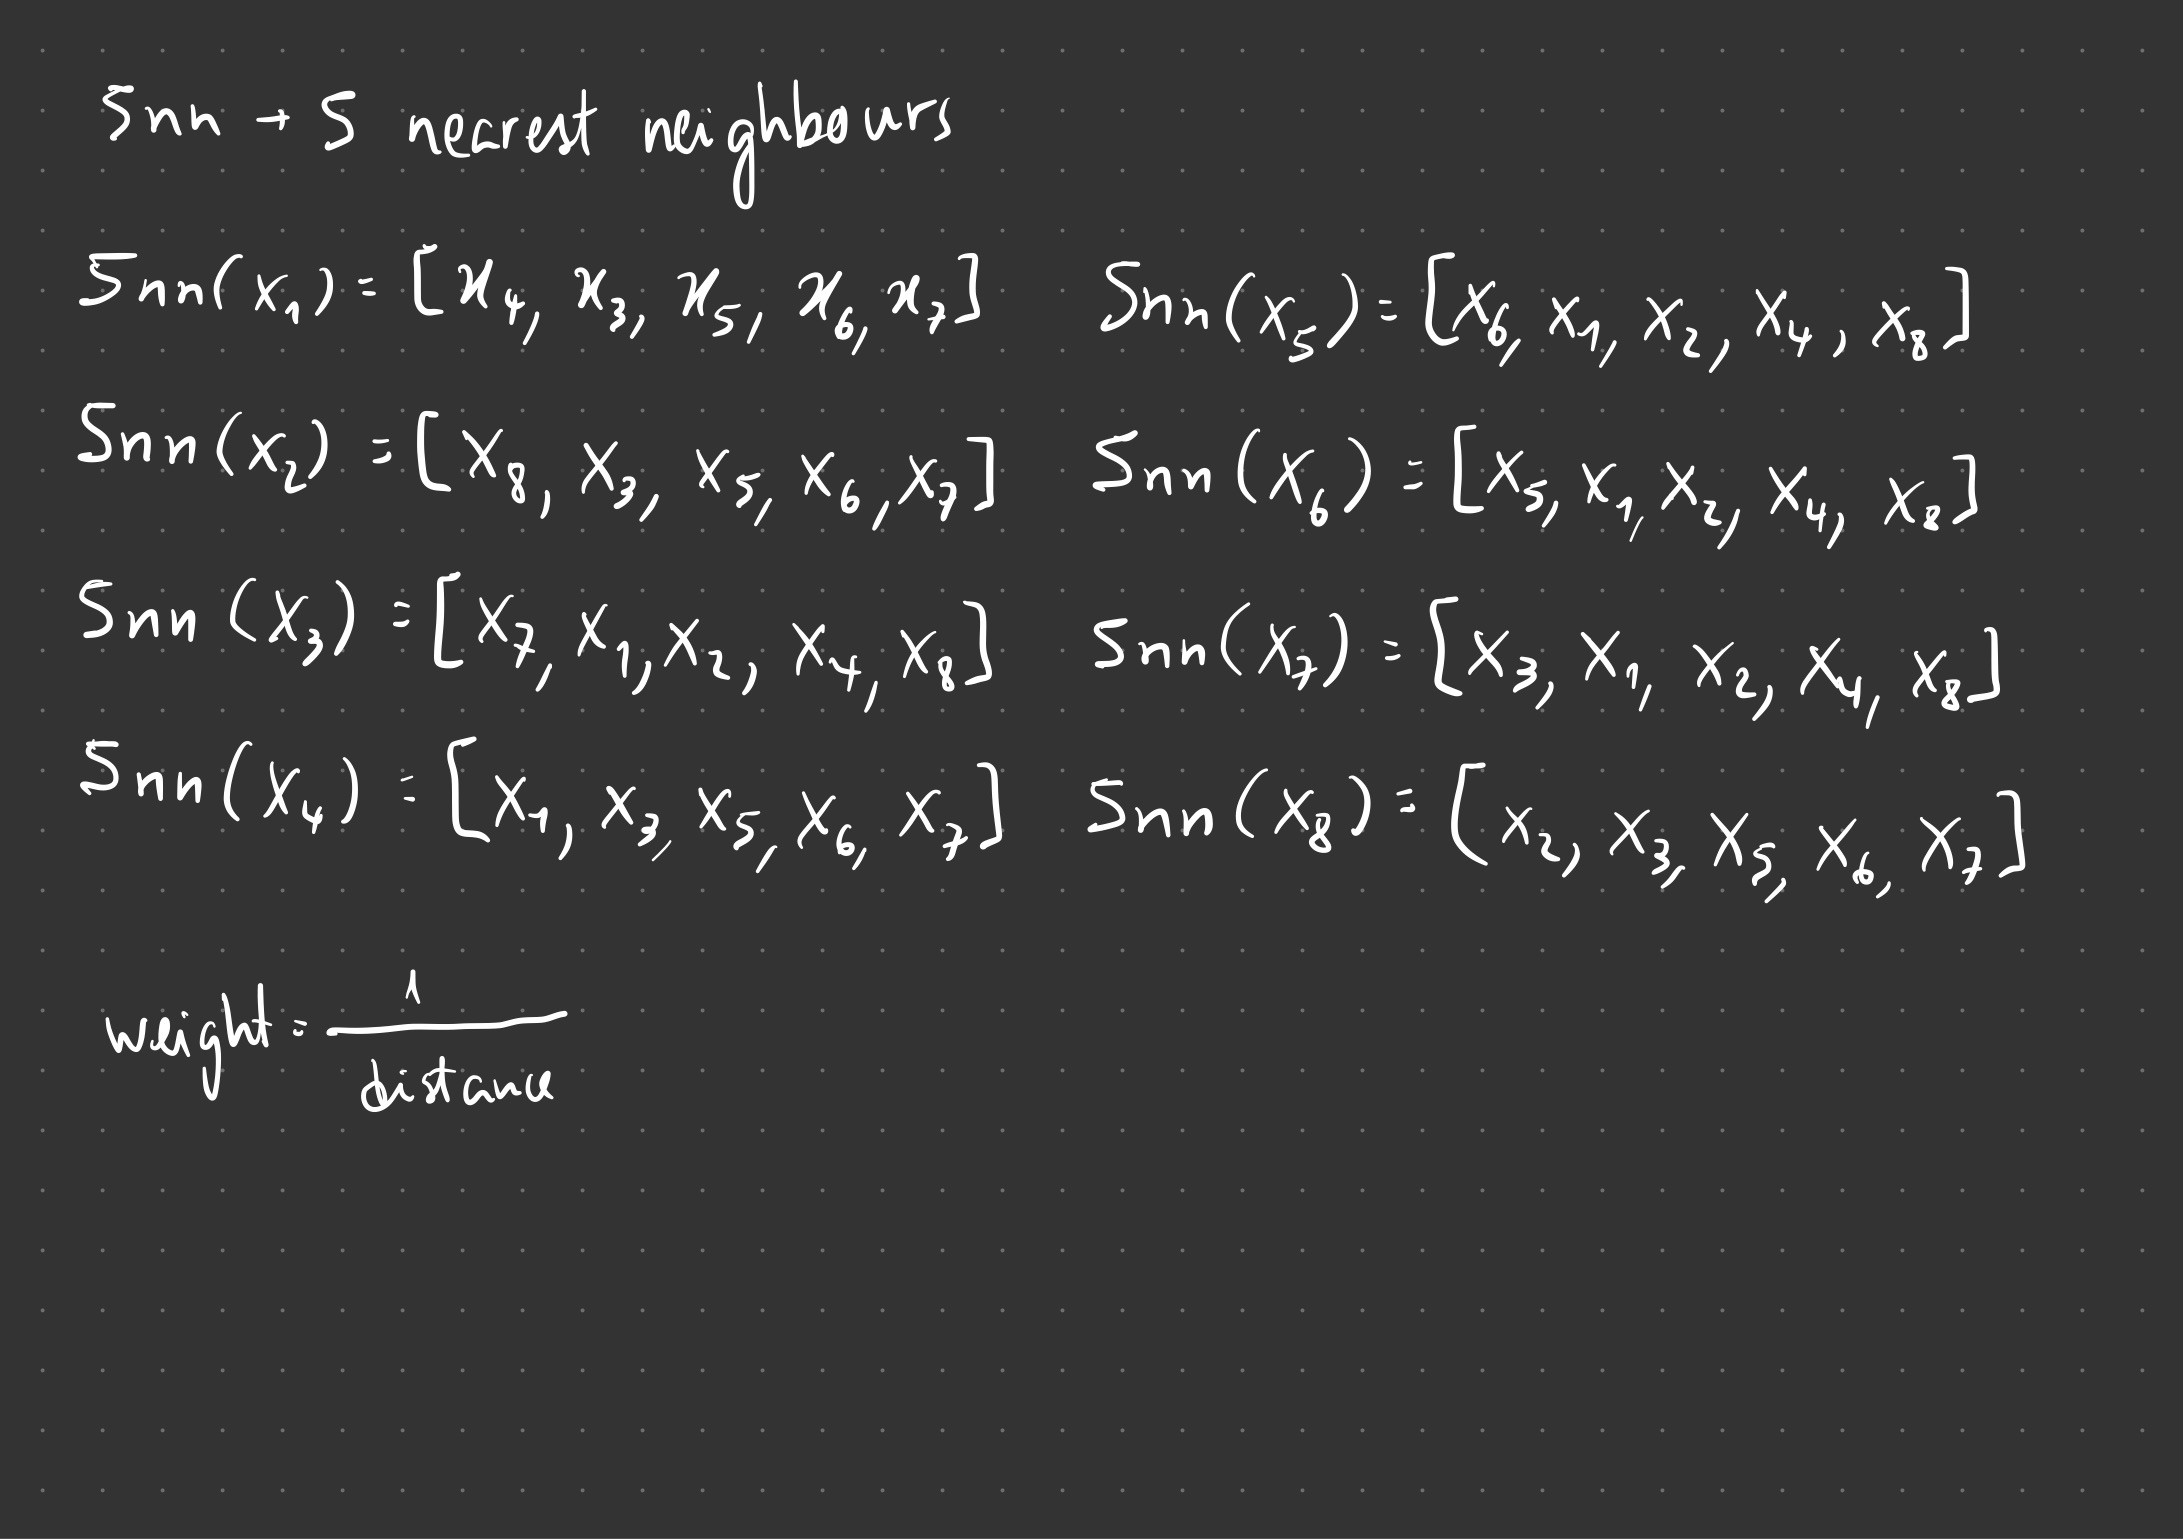 5nn → 5 nearest neighbours
5nn(x₁) = [x₄, x₃, x₅, x₆, x₇]
5nn(x₂) = [x₈, x₃, x₅, x₆, x₇]
5nn(x₃) = [x₇, x₁, x₂, x₄, x₈]
5nn(x₄) = [x₁, x₃, x₅, x₆, x₇]
5nn(x₅) = [x₆, x₁, x₂, x₄, x₈]
5nn(x₆) = [x₅, x₁, x₂, x₄, x₈]
5nn(x₇) = [x₃, x₁, x₂, x₄, x₈]
5nn(x₈) = [x₂, x₃, x₅, x₆, x₇]
weight = 1 / distance